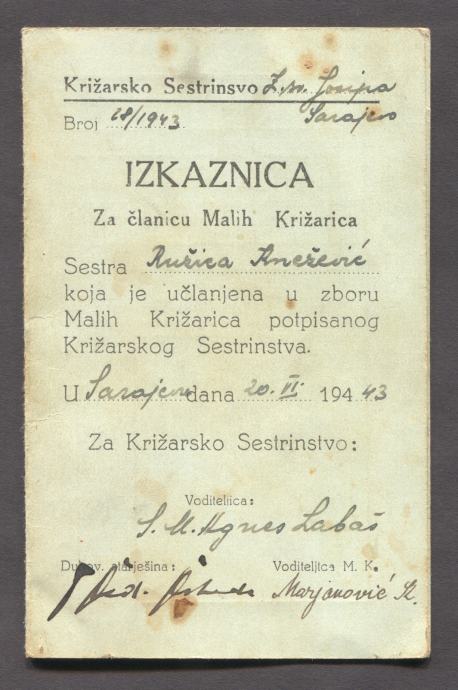 Križarsko Sestrinsvo Ž. sv. Josipa
Broj 28/1943 Sarajevo
IZKAZNICA
Za članicu Malih Križarica
Sestra Ružica Knežević
koja je učlanjena u zboru
Malih Križarica potpisanog
Križarskog Sestrinstva.
U Sarajevu dana 20. VI. 194 43
Za Križarsko Sestrinstvo:
Voditeljica:
S. M. Agnes Labaš
Duhov. starješina: Voditeljica M. K.
Marjanović